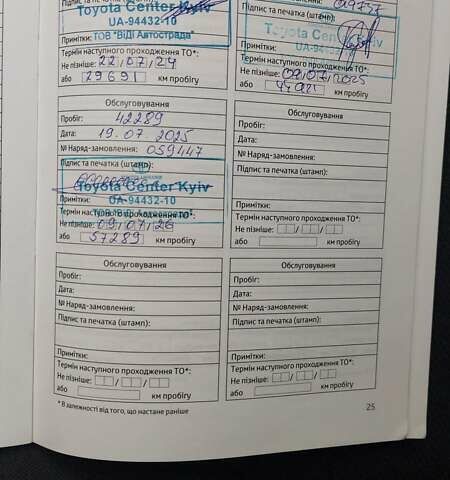 Toyota Center Kyiv
UA-94432-10
Примітки: ТОВ "ВіДі Автострада"
Термін наступного проходження ТО*:
Не пізніше: 22/07/24
або 29691 км пробігу
Підпис та печатка (штамп):
Toyota Center
Термін наступного проходження ТО*:
Не пізніше: 09/07/2025
або км пробігу
Обслуговування
Пробіг: 42289
Дата: 19.07.2025
№ Наряд-замовлення: 059447
Підпис та печатка (штамп):
Toyota Center Kyiv
UA-94432-10
Примітки:
Термін наступного проходження ТО*:
Не пізніше: 09/07/26
або 57289 км пробігу
Обслуговування
Пробіг:
Дата:
№ Наряд-замовлення:
Підпис та печатка (штамп):
Примітки:
Термін наступного проходження ТО*:
Не пізніше: / /
або км пробігу
Обслуговування
Пробіг:
Дата:
№ Наряд-замовлення:
Підпис та печатка (штамп):
Примітки:
Термін наступного проходження ТО*:
Не пізніше: / /
або км пробігу
Обслуговування
Пробіг:
Дата:
№ Наряд-замовлення:
Підпис та печатка (штамп):
Примітки:
Термін наступного проходження ТО*:
Не пізніше: / /
або км пробігу
* В залежності від того, що настане раніше
25